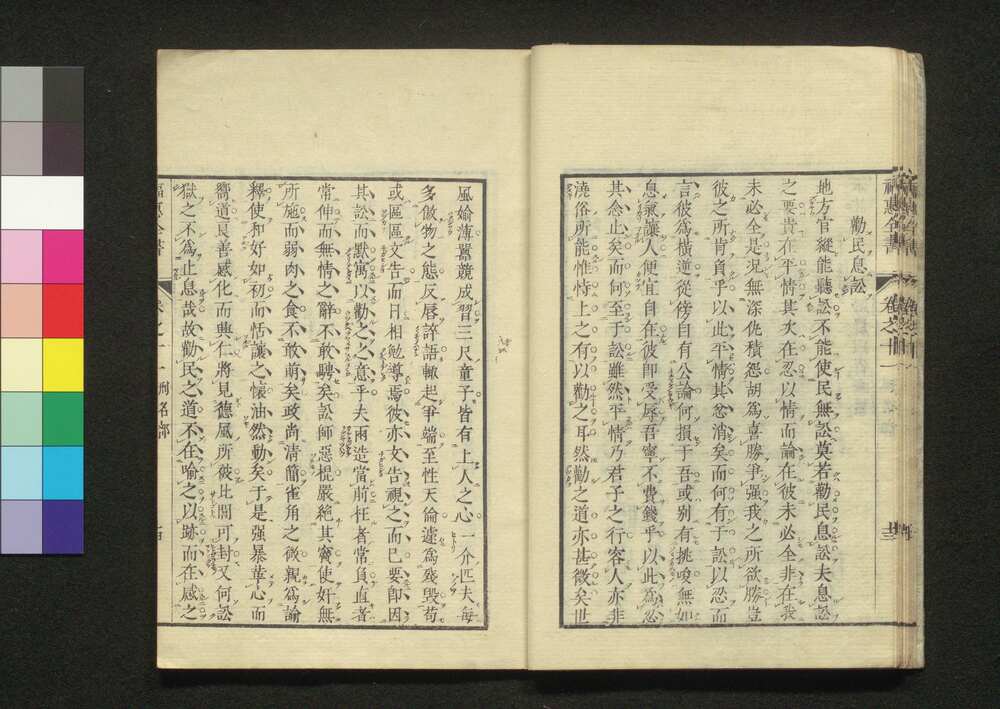 勸民息訟
地方官縱能聽訟不能使民無訟莫若勸民息訟夫息訟
之要貴在平情其次在忍以情而論在彼未必全非在我
未必全是況無深仇積怨胡為喜勝爭强我之所欲勝豈
彼之所肯負乎以此平情其忿消矣而何有于訟以忍而
言彼為橫逆從傍自有公論何損于吾或别有挑唆無如
息氣讓人便宜自在彼卽受辱吾寧不費錢乎以此為忍
其念止矣而何至于訟雖然平情乃君子之行容人亦非
澆俗所能惟恃上之有以勸之耳然勸之道亦甚微矣世
風婾薄囂競成習三尺童子皆有上人之心一介匹夫每
多傲物之態反唇誶語輙起爭端至性天倫遽為殘毀苟
或區區文告而月相勉導焉彼亦文告視之而已要卽因
其訟而默寓以勸之之意乎夫兩造當前枉者常負直者
常伸而無情之辭不敢騁矣訟師惡棍嚴絶其竇使奸無
所施而弱肉之食不敢萌矣政尚清簡雀角之微親為諭
釋使和好如初而恬讓之懷油然動矣于是强暴革心而
嚮道良善感化而興仁將見德風所被比閭可封又何訟
獄之不為止息哉故勸民之道不在喻之以跡而在感之
卷之十一 刑名部